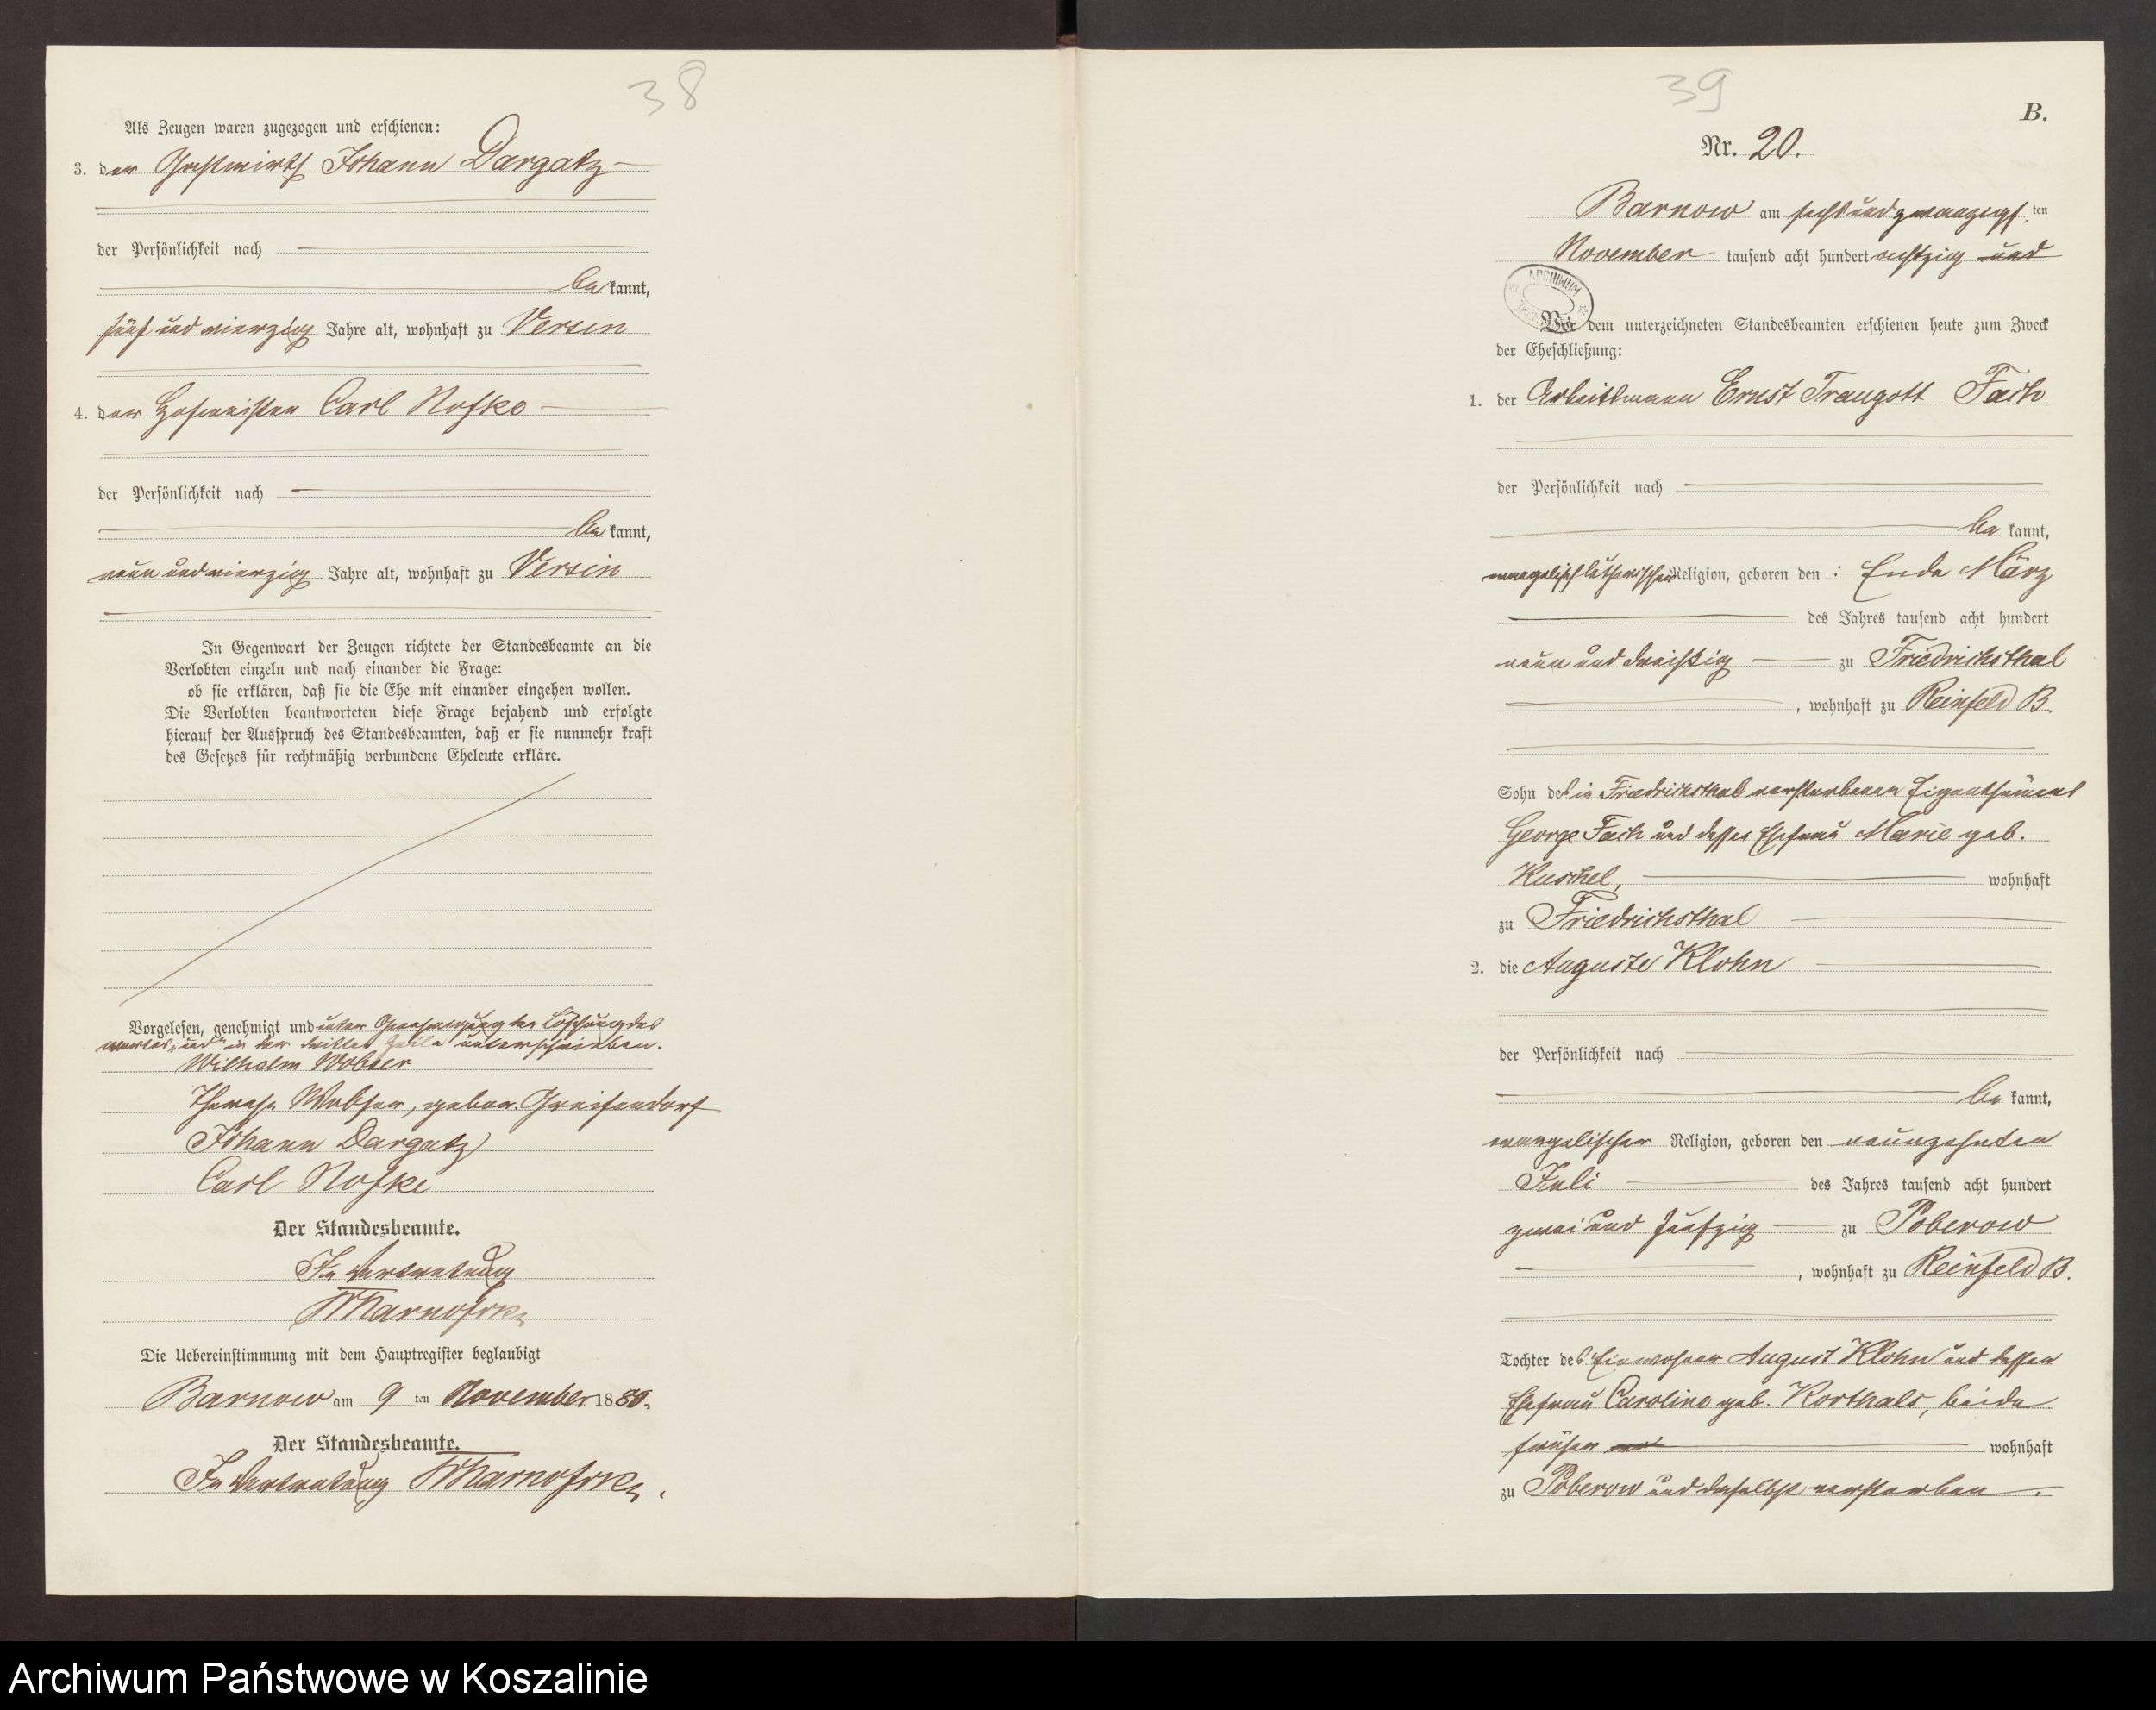 38
Als Zeugen waren zugezogen und erschienen:
3. der Gastwirth Johann Dargatz
der Persönlichkeit nach
be kannt,
fünf und vierzig Jahre alt, wohnhaft zu Versin
4. der Hofmeister Carl Nofke
der Persönlichkeit nach
be kannt,
neun und vierzig Jahre alt, wohnhaft zu Versin
In Gegenwart der Zeugen richtete der Standesbeamte an die
Verlobten einzeln und nach einander die Frage:
ob sie erklären, daß sie die Ehe mit einander eingehen wollen.
Die Verlobten beantworteten diese Frage bejahend und erfolgte
hierauf der Ausspruch des Standesbeamten, daß er sie nunmehr kraft
des Gesetzes für rechtmäßig verbundene Eheleute erkläre.
Vorgelesen, genehmigt und unter Genehmigung der Löschung des
wortes „und" in der dritten Zeile unterschrieben.
Wilhelm Wobser
Therese Wobser, gebor. Greifendorf
Johann Dargatz
Carl Nofke
Der Standesbeamte.
In Vertretung
Die Uebereinstimmung mit dem Hauptregister beglaubigt
Barnow am 9 ten November 1880.
Der Standesbeamte.
In Vertretung
39
B.
Nr. 20.
Barnow am sechs und zwanzigs. ten
November tausend acht hundert achtzig und
ARCHIWUM
Vor dem unterzeichneten Standesbeamten erschienen heute zum Zweck
der Eheschließung:
1. der Arbeitsmann Ernst Traugott Fach
der Persönlichkeit nach
be kannt,
evangelisch lutherischer Religion, geboren den : Ende März
des Jahres tausend acht hundert
neun und dreißig zu Friedrichsthal
, wohnhaft zu Reinfeld B.
Sohn des in Friedrichsthal verstorbenen Eigenthümers
George Fach und dessen Ehefrau Marie geb.
Kuschel, wohnhaft
zu Friedrichsthal
2. die Auguste Klohn
der Persönlichkeit nach
be kannt,
evangelischer Religion, geboren den neunzehnten
Juli des Jahres tausend acht hundert
zwei und fünfzig zu Poberow
, wohnhaft zu Reinfeld B.
Tochter des Einwohner August Klohn und dessen
Ehefrau Caroline geb. Korthals, beide
früher wohnhaft
zu Poberow und daselbst verstorben.
Archiwum Państwowe w Koszalinie